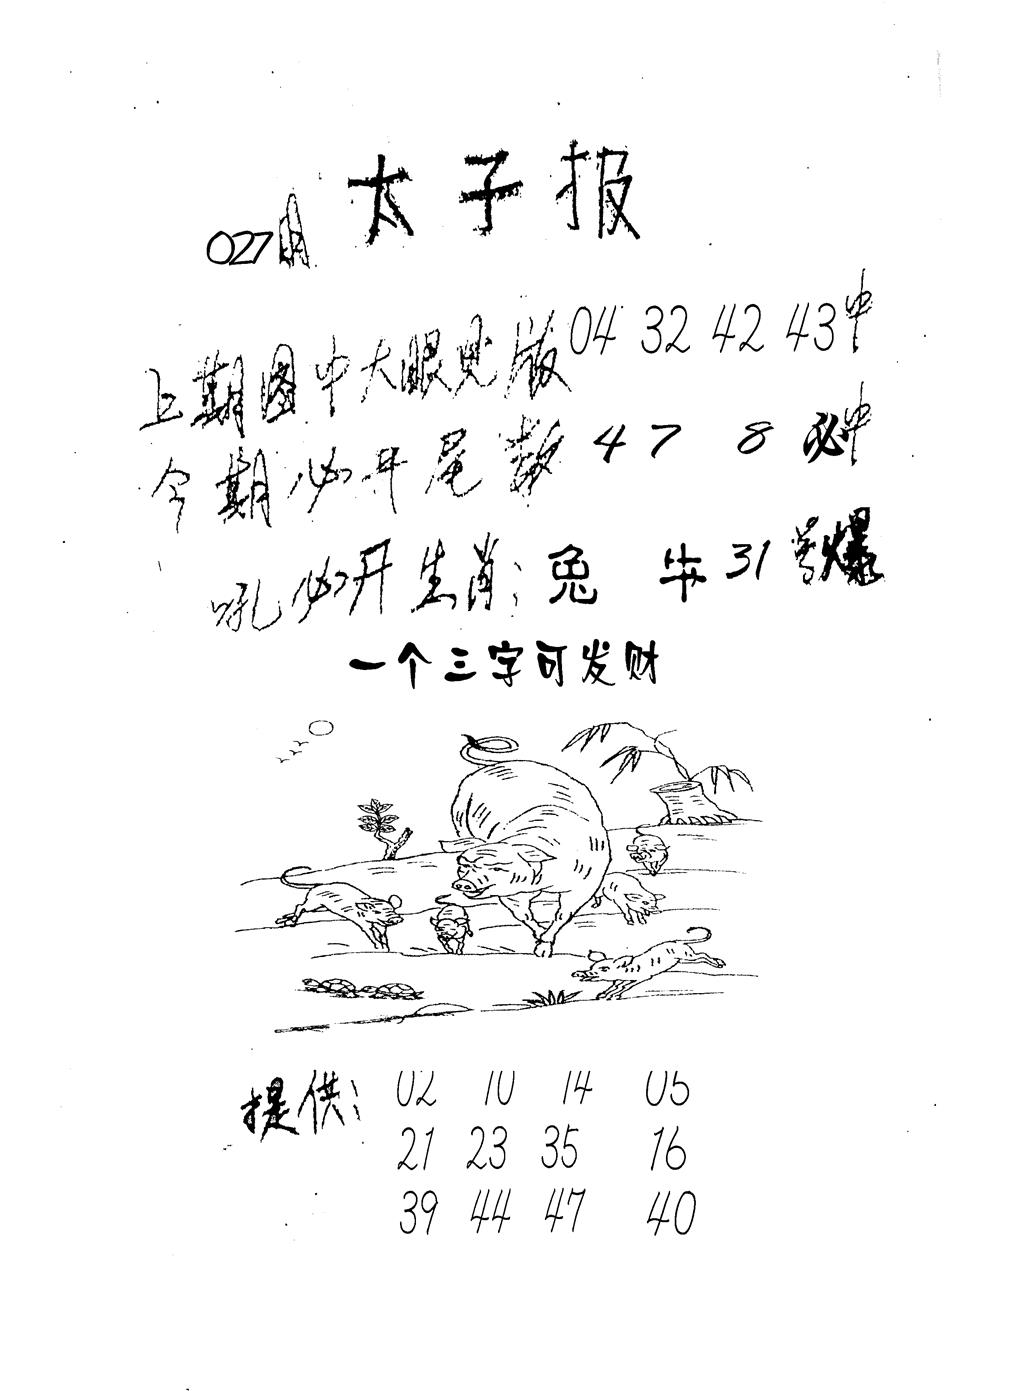 太子报
027期
上期图中大眼见版 04 32 42 43中
今期必开尾数 4 7 8 必中
吼必开生肖：兔 牛 31号爆
一个三字可发财
提供： 02 10 14 05
21 23 35 16
39 44 47 40